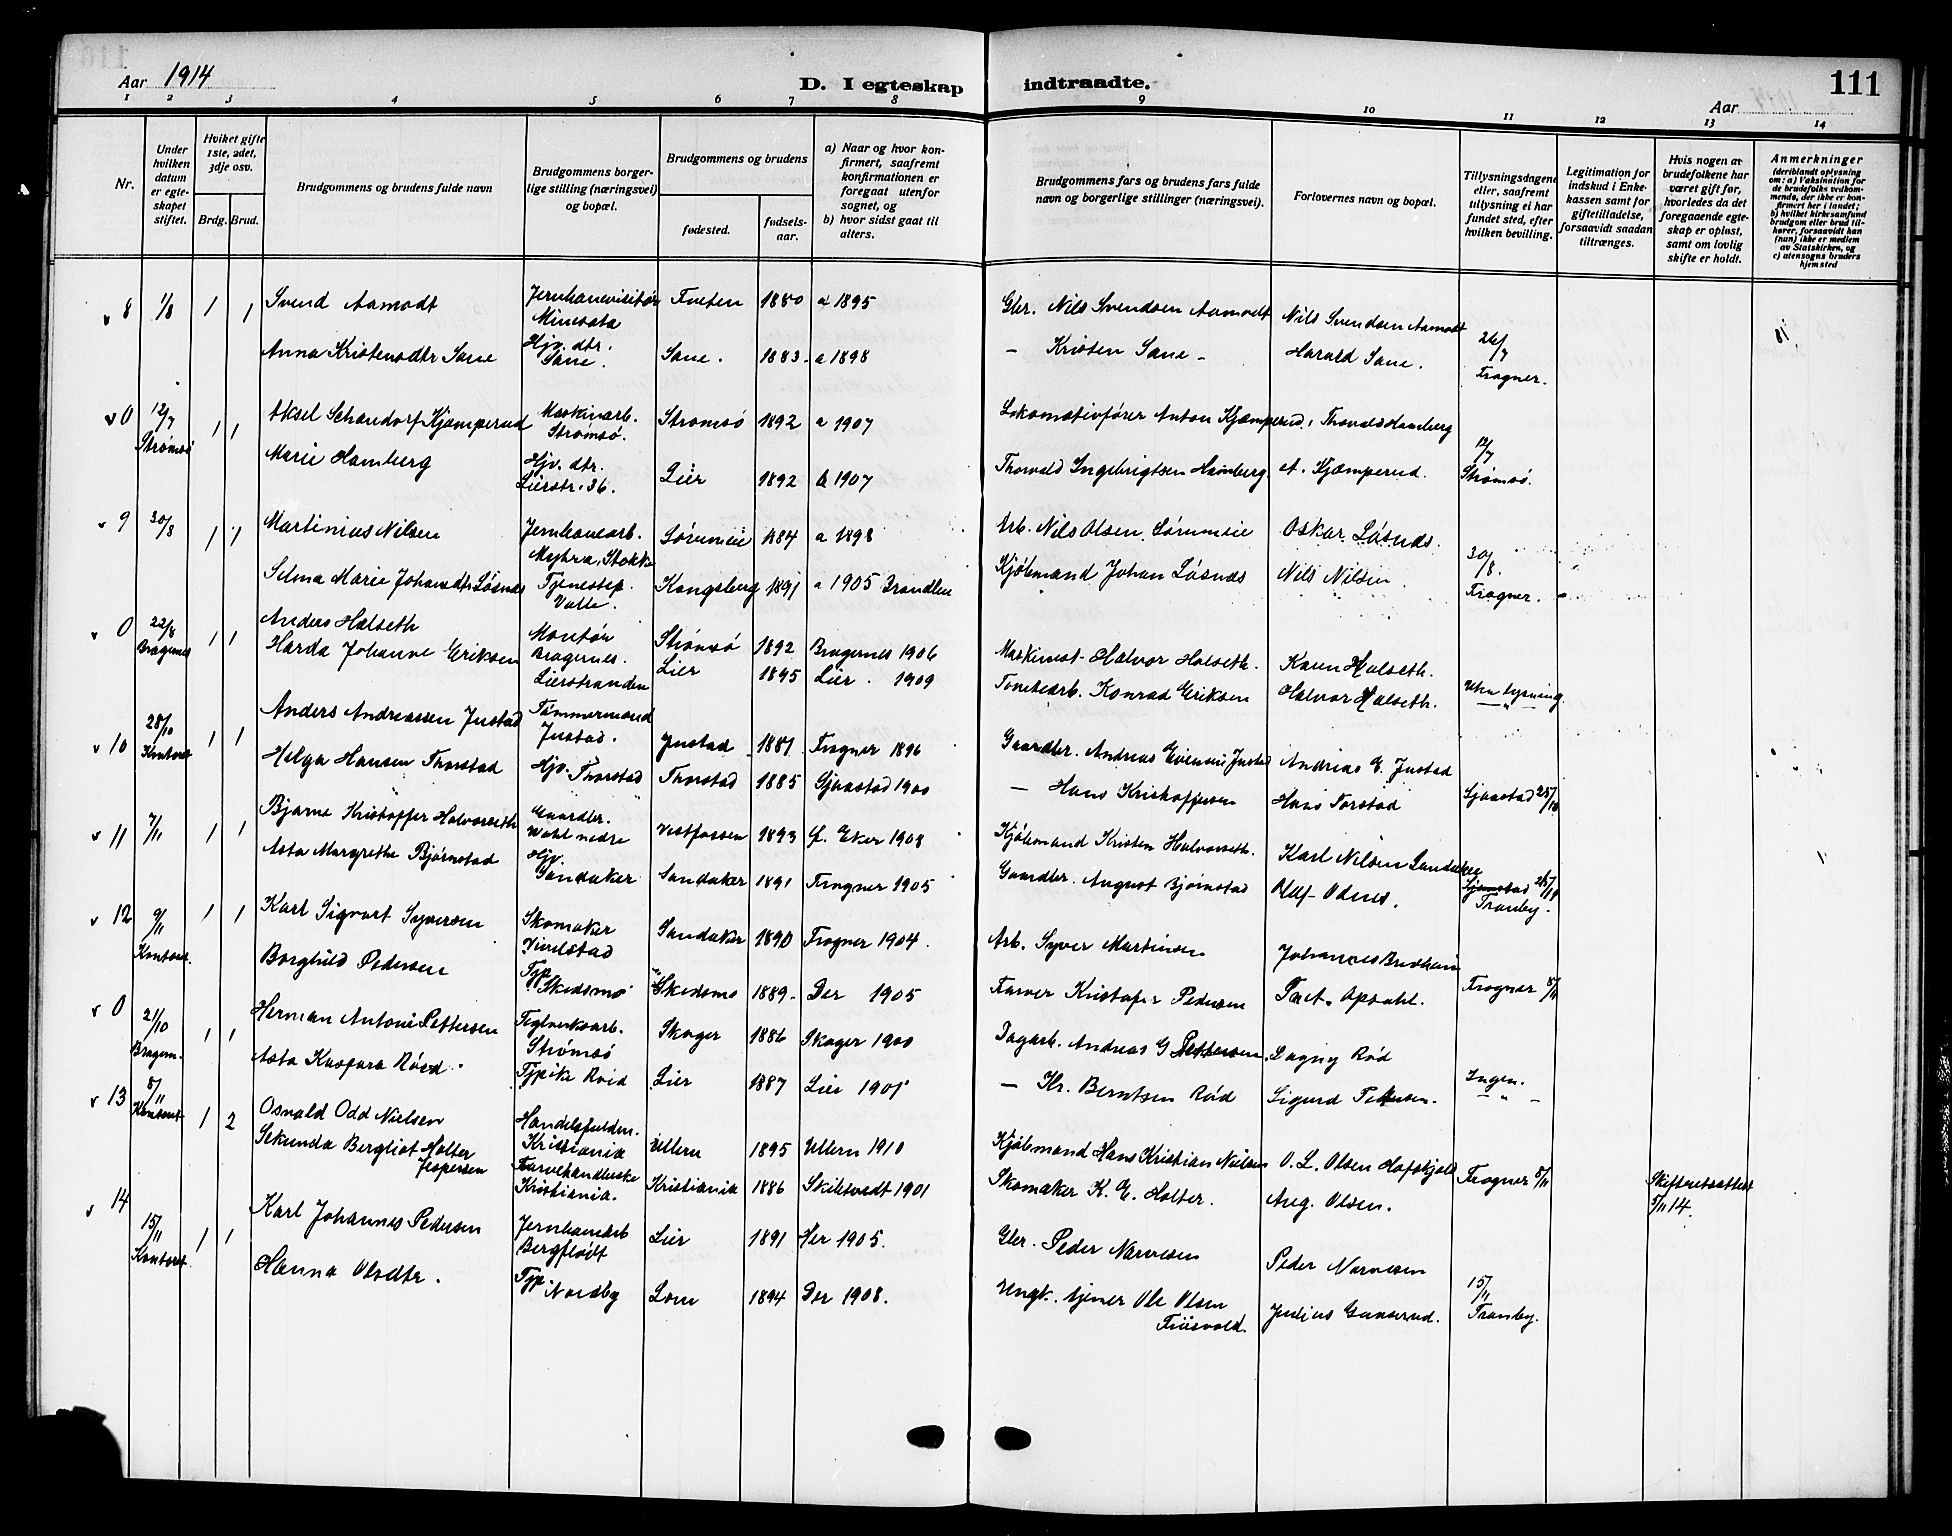 Aar 1914
D. I egteskap
indtraadte.
111
Aar
1 2 3 4 5 6 7 8 9 10 11 12 13 14
Nr.
Under hvilken datum er egteskapet stiftet.
Hvilket gifte 1ste, 2det, 3dje osv.
Brdg. Brud.
Brudgommens og brudens fulde navn
Brudgommens borgerlige stilling (næringsvei) og bopæl.
Brudgommens og brudens
fødested.
fødselsaar.
a) Naar og hvor konfirmert, saafremt konfirmationen er foregaat utenfor sognet, og
b) hvor sidst gaat til alters.
Brudgommens fars og brudens fars fulde navn og borgerlige stillinger (næringsvei).
Forlovernes navn og bopæl.
Tillysningsdagene eller, saafremt tillysning ei har fundet sted, efter hvilken bevilling.
Legitimation for indskud i Enkekassen samt for giftetilladelse, forsaavidt saadan tiltrænges.
Hvis nogen av brudefolkene har været gift før, hvorledes da det foregaaende egteskap er opløst, samt om lovlig skifte er holdt.
Anmerkninger
(deriblandt oplysning om: a) Vaksination for de brudefolks vedkommende, der ikke er konfirmert her i landet; b) hvilket kirkesamfund brudgom eller brud tilhører, forsaavidt han (hun) ikke er medlem av Statskirken, og c) utensogns bruders hjemsted
v 8 1/8 1 1 Svend Aamodt Jernbanevisitør Minesota Tveten 1880 a 1895 Gbr. Nils Svendsen Aamodt Nils Svendsen Aamodt
Anna Kristensdtr Sane Hjv. dtr. Sane. Sane. 1883 a 1898 — Kristen Sane — Harald Sane. 26/7 Frogner.
v 0 12/7 Strømsø 1 1 Aksel Schandorf Kjæmperud Maskinarb. Strømsø. Strømsø 1892 a 1907 Lokomotivfører Anton Kjæmperud, Thorvald Hamberg
Marie Hamberg Hjv. dtr. Lierstr. 36. Lier 1892 b 1907 Thorvald Ingebrigtsen Hamberg. A. Kjæmperud. 12/7 Strømsø.
v 9 30/8 1 1 Martinius Nilsen Jernbanearb. Myhra, Stokke Sørumeie 1884 a 1898 Arb. Nils Olsen Sørumeie Oskar Løsnæs.
Selma Marie Johansdtr Løsnæs Tjenestep. Valle. Kongsberg 1891 a 1905 Kjøbmand Johan Løsnæs Nils Nilsen 30/8. Frogner.
v 0 22/8 Bragernes 1 1 Anders Halseth Montør Bragernes. Strømsø 1892 Bragernes 1906 Maskinist Halvor Halseth. Karen Halseth.
Harda Johanne Eriksen Lierstranden Lier 1895 Lier. 1909 Konrad Eriksen Halvor Halseth. Uten lysning.
v 10 28/10 Kontoret 1 1 Anders Andreassen Justad Tømmermand Justad. Justad 1881 Frogner 1896 Gaardbr. Andreas Evensen Justad Andreas E. Justad
Helga Hansen Thorstad Hjv. Thorstad Thorstad 1885 Sjaastad 1900 — Hans Kristoffersen Hans Torstad Sjaastad 25/10
v 11 7/11 1 1 Bjarne Kristoffer Halvorseth Gaardbr. nedre Vestfossen 1893 Ø. Eker 1908 Kjøbmand Kristen Halvorseth. Karl Nilsen Sandaker
Asta Margrethe Bjørnstad Hjv. Sandaker Sandaker 1891 Frogner 1905 Gaardbr. August Bjørnstad Olaf Odnes. Sjaastad Tranby.
v 12 9/11 Kontoret. 1 1 Karl Sigvart Syversen Skomaker Vivelstad Sandaker 1890 Frogner 1904. Arb. Syver Martinsen Johannes
Borghild Pedersen Tjp. Skedsmo Skedsmo 1889. Der 1905 Farver Kristofer Pedersen Opsahl. Frogner 8/11
v 0 21/10 Bragern. 1 1 Herman Antoni Pettersen Teglverksarb. Strømsø Skoger 1886 Skoger 1900 Dagarb. Andreas G Pettersen. Dagny Rød
Asta Kaspara Røed. Tjpike Røid Lier 1887 Lier 1901 — Kr. Berntsen Rød Sigurd Pettersen. Ingen. — " —
v 13 8/11 Kontoret 1 2 Osvald Odd Nielsen Handelsfuldm. Kristiania Ullern 1895 Ullern 1910 Kjøbmand Hans Kristian Nielsen O. L. Olsen Hafskjold Frogner 8/11
Sekunda Bergliot Holter Jespersen Farvehandlerske Kristiania. Kristiania 1886 Skiltvedt 1901 Skomaker K. E. Holter. Aug. Olsen. Skifteretsattest 5/11 14.
v 14 15/11 Kontoret. 1 1 Karl Johannes Pedersen Jernbanearb Bergflødt Lier 1891 Her 1905. Gbr. Peder Narvesen Peder Narvesen
Hanna Olsdtr. Tjp. Nordby Lom 1894 Der 1908. Ungk. tjener Ole Olsen Julius Gunnerud. 15/11 Tranby.